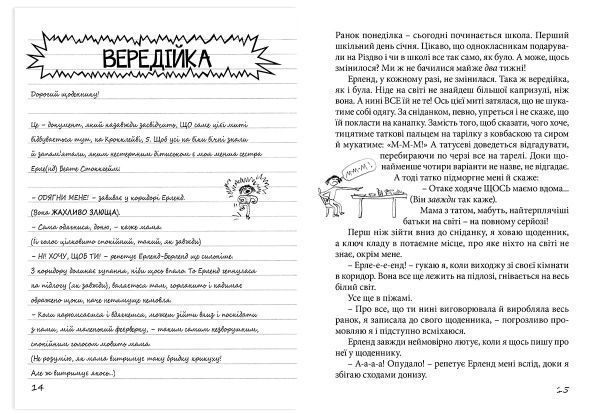 ВЕРЕДІЙКА
Дорогий щоденнику!
Це – документ, який назавжди засвідчить, ЩО саме цієї миті
відбувається тут, на Крокклейві, 5. Щоб усі на віки вічні знали
й запам'ятали, яким нестерпним бітиськом є моя менша сестра
Ерле(нд) Беате Стоккейм:
– ОДЯГНИ МЕНЕ! – завиває у коридорі Ерленд.
(Вона ЖАХЛИВО ЗЛЮЩА).
– Сама одягнися, доню, – каже мама.
(Її голос цілковито спокійний, такий, як завжди)
– НІ! ХОЧУ, ЩОБ ТИ! – репетує Ерленд-Берленд ще сильніше.
З коридору долинає гупання, ніби щось впало. То Ерленд гепнулася
на підлогу (як завжди), валяється там, горлакить і вдимає
ображене щоки, наче немовля.
– Коли нагримаємся і вдягнемся, можеш зійти вниз і поснідати
з нами, мій маленький феєрверку, – таким самим незворушним,
спокійним голосом мовить мама.
(Не розумію, як мама витримує таку бридку крикуху!
Але ж витримує якось..)
14
Ранок понеділка – сьогодні починається школа. Перший
шкільний день січня. Цікаво, що однокласникам подарува-
ли на Різдво і чи в школі все так само, як було. А може, щось
змінилося? Ми ж не бачилися майже два тижні!
Ерленд, у кожному разі, не змінилася. Така ж вередійка,
як і була. Ніде на світі не знайдеш більшої капризулі, ніж
вона. А нині ВСЕ їй не те! Ось цієї миті затялася, що не шука-
тиме собі одягу. За сніданком, певно, упреться і не скаже, що
їй покласти на канапку. Замість того, щоб сказати, чого хоче,
тицятиме таткові пальцем на тарілку з ковбаскою та сиром
й мукатиме: «М-М-М!» А татусеві доведеться відгадувати,
перебираючи по черзі все на тарелі. Доки що-
найменше чотири варіанти не назве, не відгадає.
М-М-М!
А тоді татко підморгне мені й скаже:
– Отаке ходяче ЩОСЬ маємо вдома...
(Він завжди так каже).
Мама з татом, мабуть, найтерплячіші
батьки на світі – на повному серйозі!
Перш ніж зійти вниз до сніданку, я ховаю щоденник,
а ключ кладу в потаємне місце, про яке ніхто на світі не
знає, окрім мене.
– Ерле-е-е-енд! – гукаю я, коли виходжу зі своєї кімнати
в коридор. Вона все ще лежить на підлозі, гнівається на весь
білий світ.
Усе ще в піжамі.
– Про все, що ти нині виговорювала й виробляла весь
ранок, я записала до свого щоденника, – погрозливо про-
мовляю я і підступно всміхаюся.
Ерленд завжди неймовірно лютує, коли я щось пишу про
неї у щоденнику.
– А-а-а-а! Опудало! – репетує Ерленд мені вслід, доки я
збігаю сходами донизу.